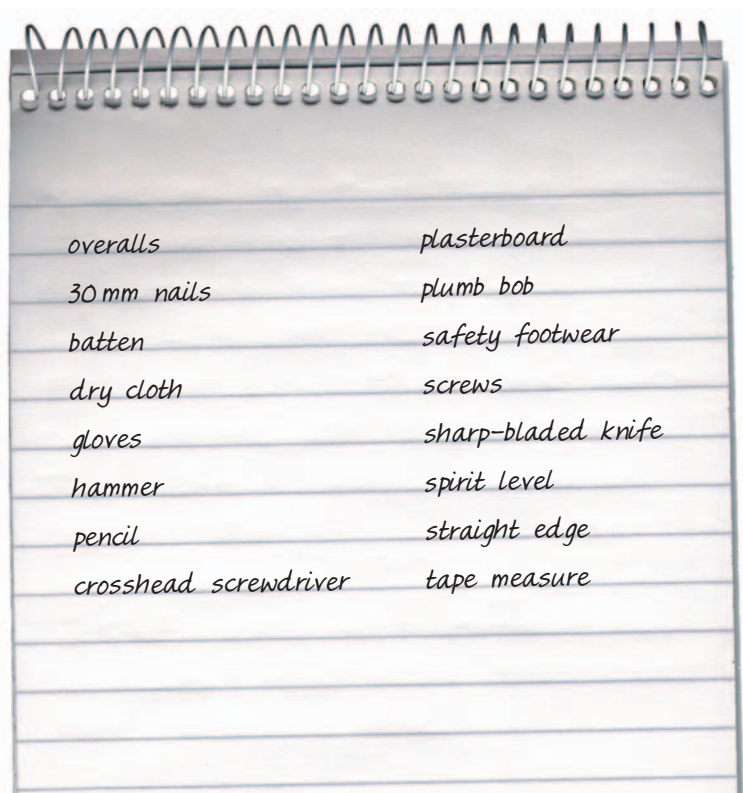 overalls
30 mm nails
batten
dry cloth
gloves
hammer
pencil
crosshead screwdriver
plasterboard
plumb bob
safety footwear
screws
sharp-bladed knife
spirit level
straight edge
tape measure